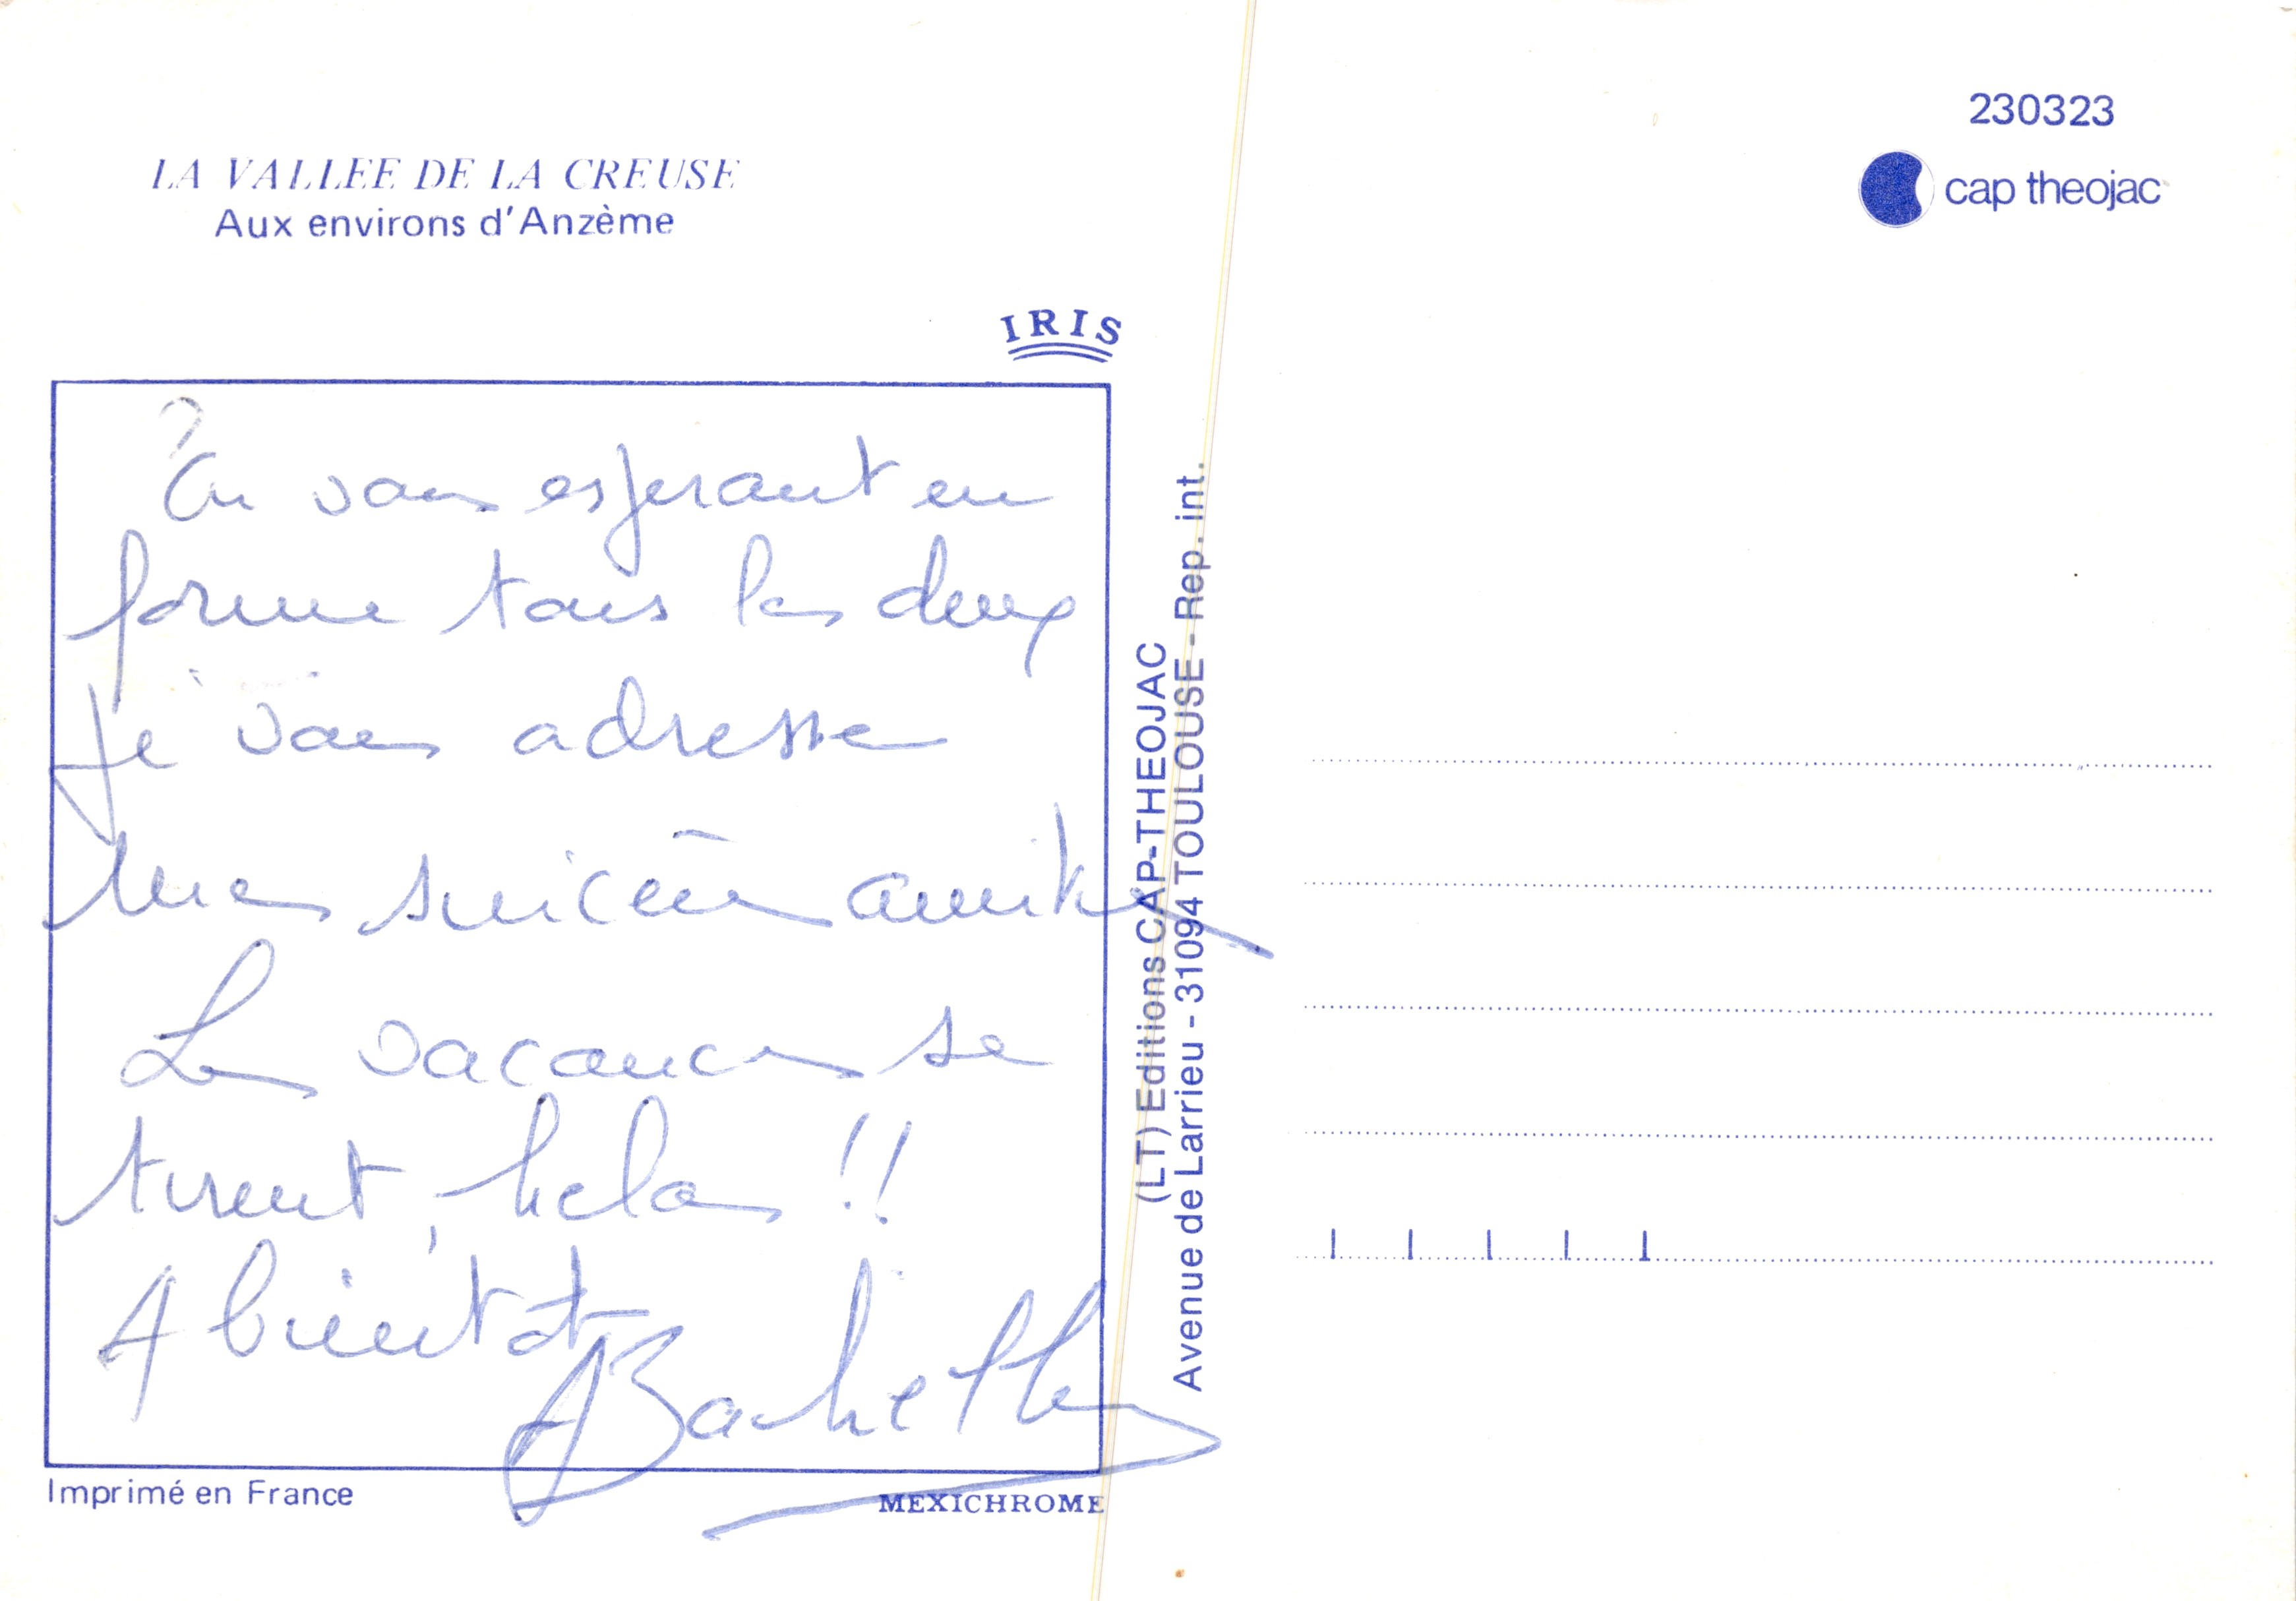 230323
cap theojac
LA VALLEE DE LA CREUSE
Aux environs d'Anzème
IRIS
En vous esperant en
forme tous les deux
je vous adresse
mes sincères amitiés
Les vacances se
tirent, helas !!
A bientôt
(LT) Editions CAP-THEOJAC
Avenue de Larrieu - 31094 TOULOUSE - Rep. int.
Imprimé en France
MEXICHROME